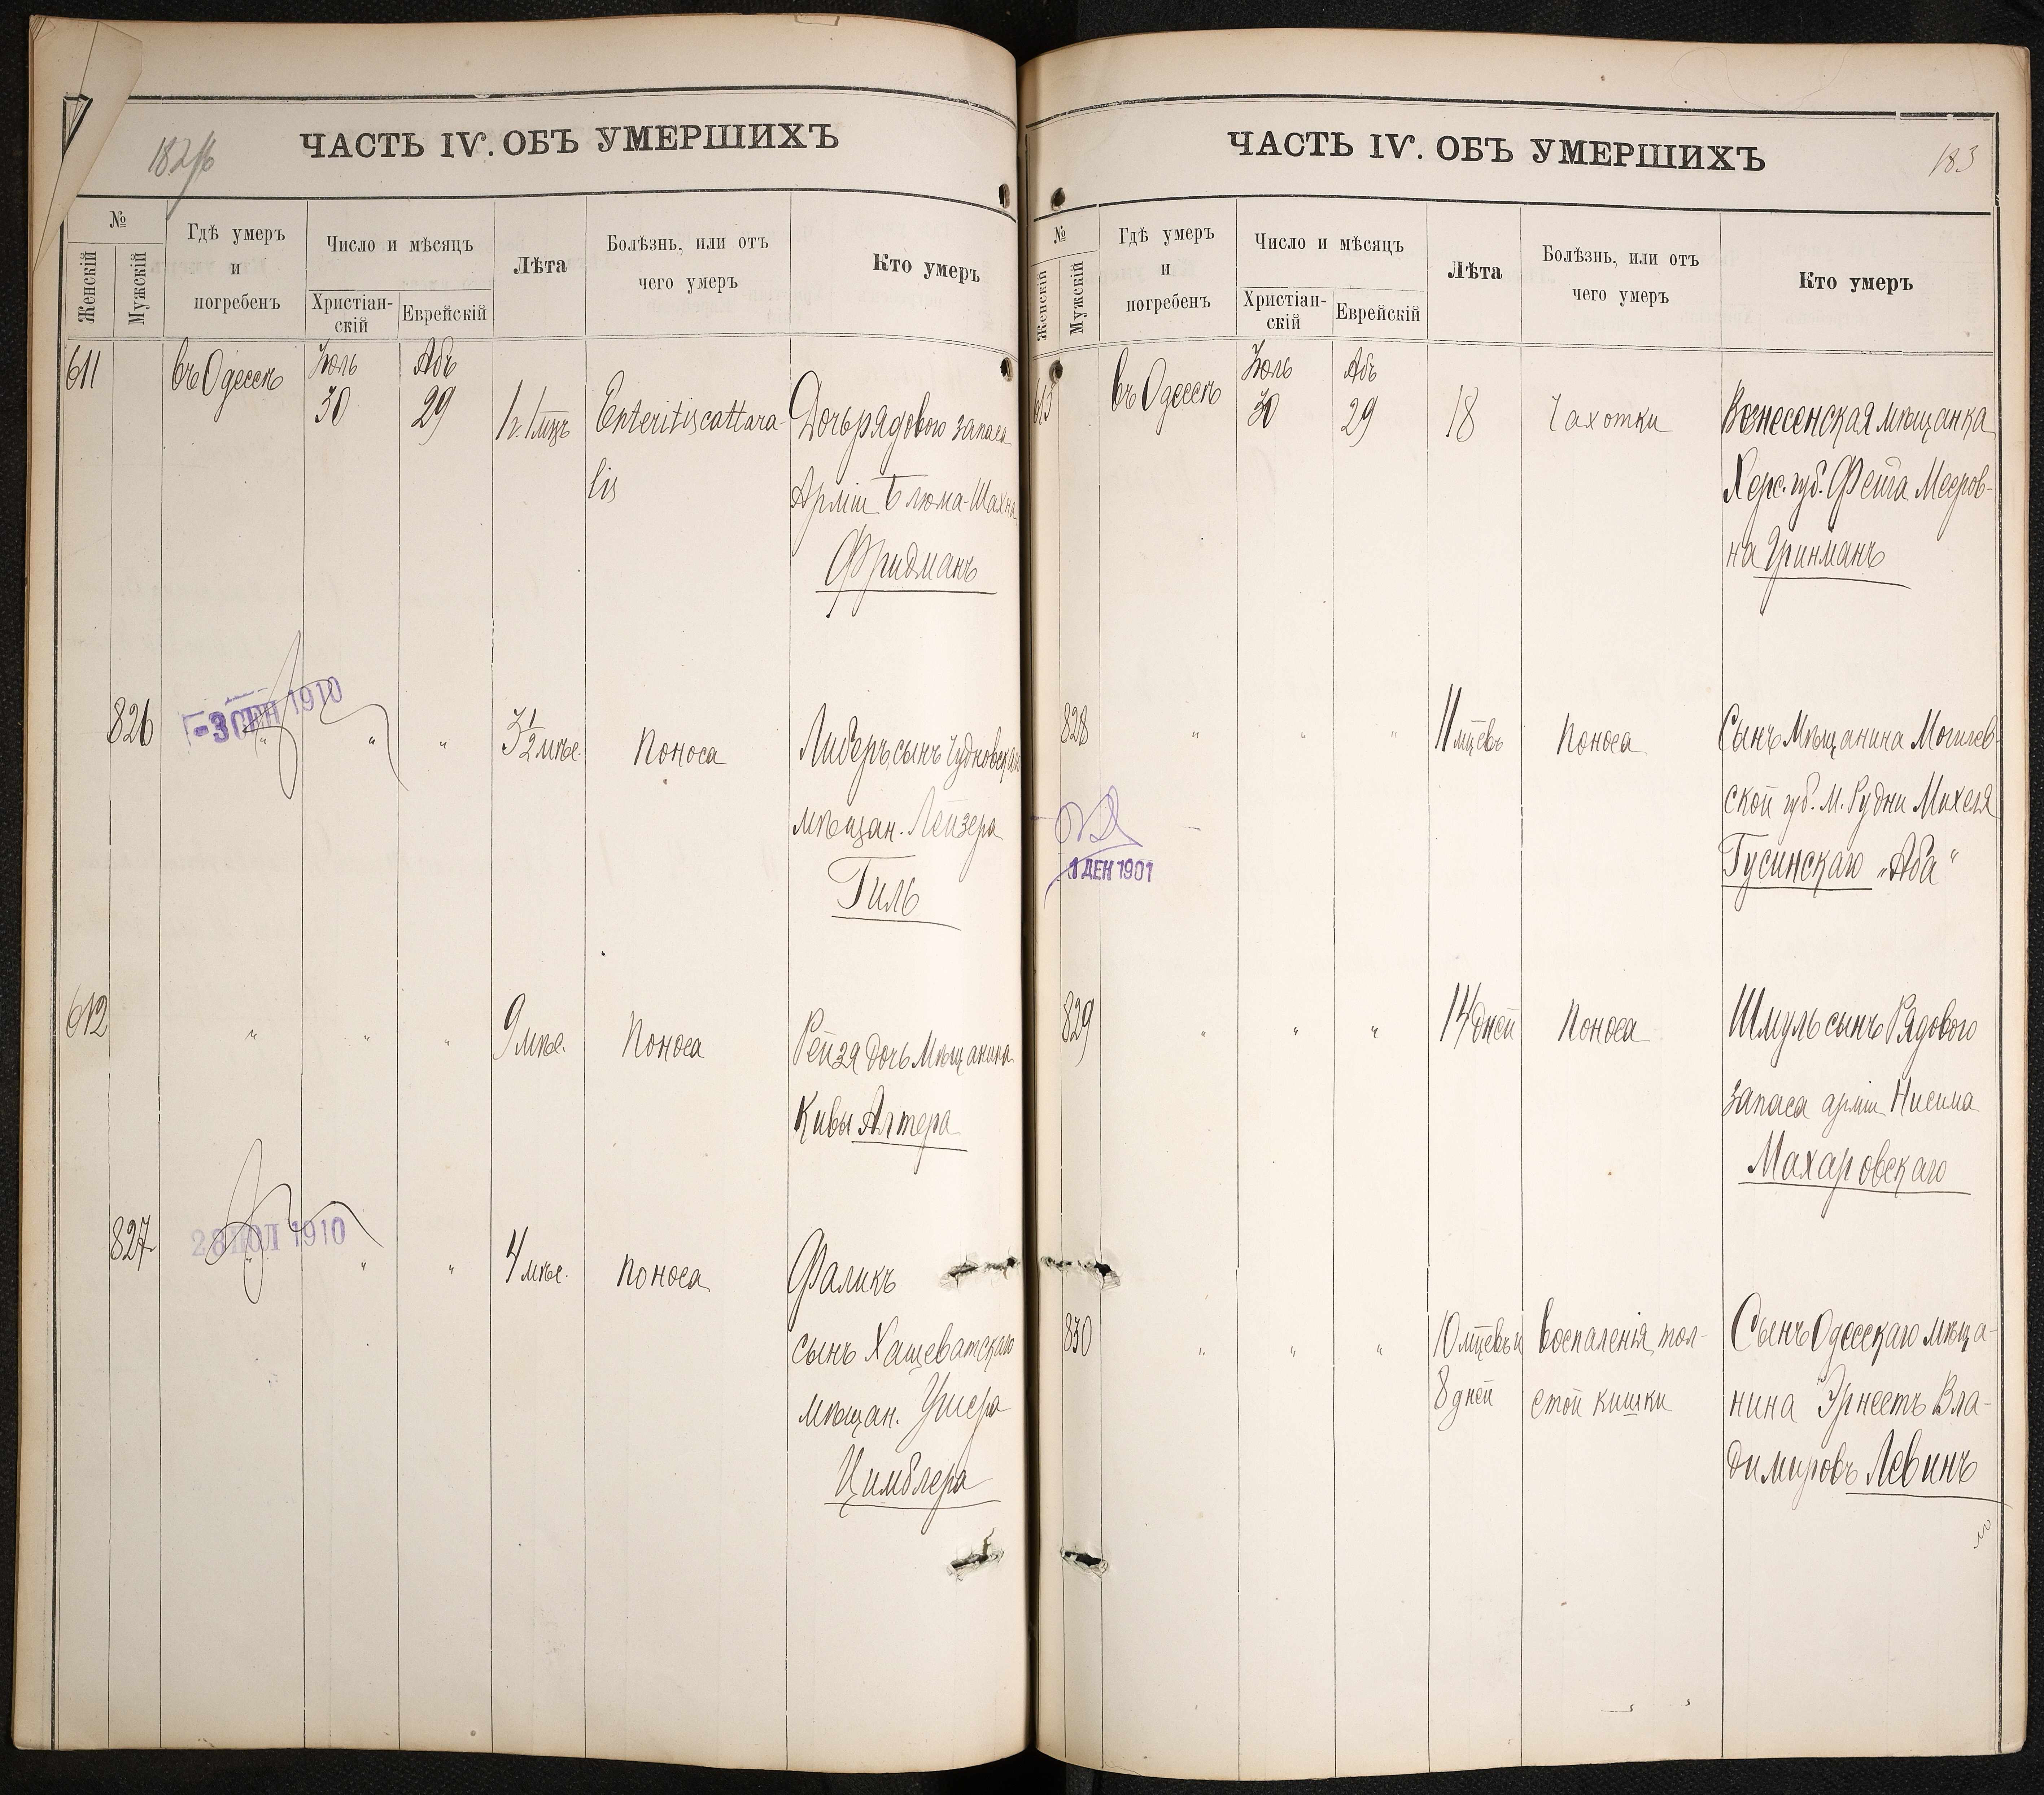 182/б
ЧАСТЬ IV. ОБЪ УМЕРШИХЪ
№
Женскій
Мужскій
Гдѣ умеръ
и
погребенъ
Число и мѣсяцъ
Христіан-
скій
Еврейскій
Лѣта
Болѣзнь, или отъ
чего умеръ
Кто умеръ
611
въ Одессѣ
Іюль
30
Абъ
29
Enteritis cattara-
lis
Дочь рядового запаса
Арміи Блюма-Шахна
Фридманъ
826
-3 СЕН 1910
" " "
3 1/2 мѣс.
Поноса
Лизеръ, сынъ Чудновскаго
мѣщан. Лейзера
Гиль
612
" " "
9 мѣс.
Поноса
Рейзя дочь Мѣщанина
Кивы Алтера
827
28 ИЮЛ 1910
" " "
4 мѣс.
Поноса
Фаликъ
сынъ Хащеватскаго
мѣщан. Ушера
Цимблера
183
ЧАСТЬ IV. ОБЪ УМЕРШИХЪ
№
Женскій
Мужскій
Гдѣ умеръ
и
погребенъ
Число и мѣсяцъ
Христіан-
скій
Еврейскій
Лѣта
Болѣзнь, или отъ
чего умеръ
Кто умеръ
613
въ Одессѣ
Іюль
30
Абъ
29
18
Чахотки
Вознесенская мѣщанка
Херс. губ. Фейга Мееров-
на Гринманъ
828
" " "
11 мцевъ
Поноса
Сынъ Мѣщанина Могилев-
ской губ. М. Рудни Михеля
Гусинскаго „Аба“
1 ДЕК 1901
829
" " "
14 дней
Поноса
Шмуль сынъ Рядового
запаса арміи Нисима
Махаровскаго
830
" " "
10 мцевъ и
8 дней
воспаленія тол-
стой кишки
Сынъ Одесскаго мѣща-
нина Эрнестъ Вла-
димировъ Левинъ